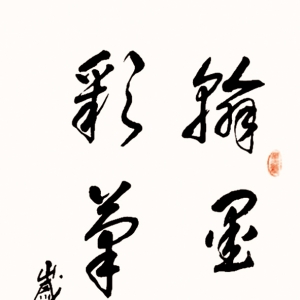 翰墨
彩筆
歲